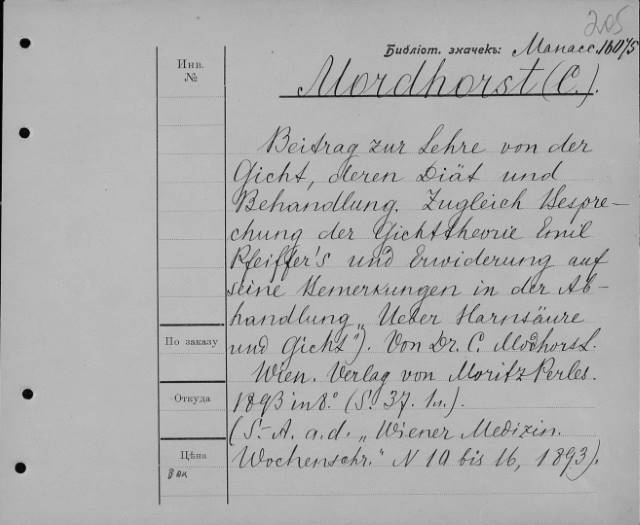 205
Библіот. значекъ: Манасс. 16075
Инв.
№
Mordhorst (C.).
Beitrag zur Lehre von der
Gicht, deren Diät und
Behandlung. Zugleich Bespre-
chung der Gichttheorie Emil
Pfeiffer's und Erwiderung auf
seine Bemerkungen in der Ab-
handlung „Ueber Harnsäure
und Gicht"). Von Dr. C. Mordhorst.
Wien. Verlag von Moritz Perles.
1893 in 8.° (S. 37. 1н.).
(S.-A. a. d. „Wiener Medizin.
Wochenschr." N 10 bis 16, 1893).
По заказу
Откуда
Цѣна